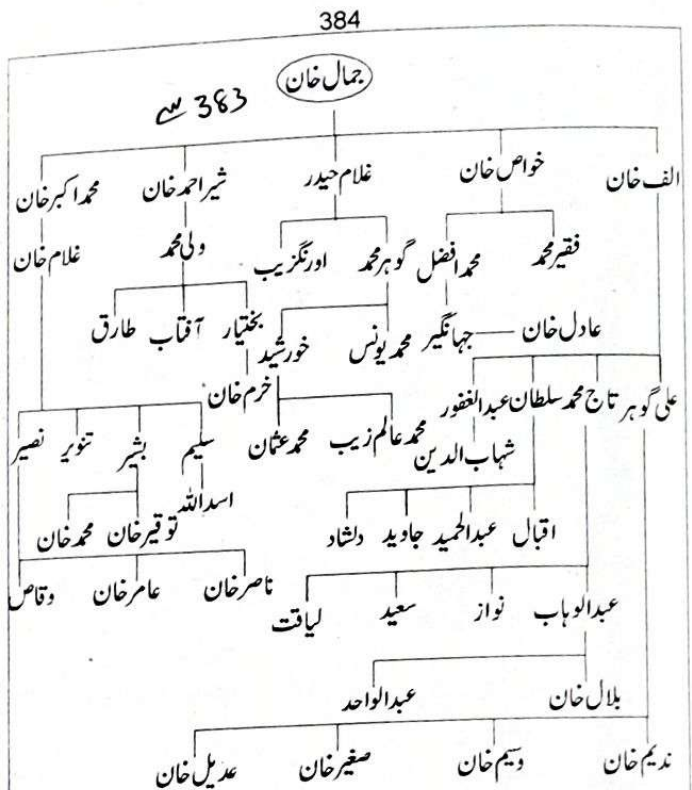 384
جمال خان
383 سے
الف خان خواص خان غلام حیدر شیر احمد خان محمد اکبر خان
فقیر محمد محمد افضل گوہر محمد اورنگزیب ولی محمد غلام خان
عادل خان جہانگیر محمد یونس خورشید بختیار آفتاب طارق
علی گوہر تاج محمد سلطان عبدالغفور خرم خان
شہاب الدین محمد عالم زیب محمد عثمان سلیم بشیر تنویر نصیر
اقبال عبدالحمید جاوید دلشاد اسد اللہ توقیر خان محمد خان
عبدالوہاب نواز سعید لیاقت ناصر خان عامر خان وقاص
بلال خان عبدالواحد
ندیم خان وسیم خان صغیر خان عدیل خان